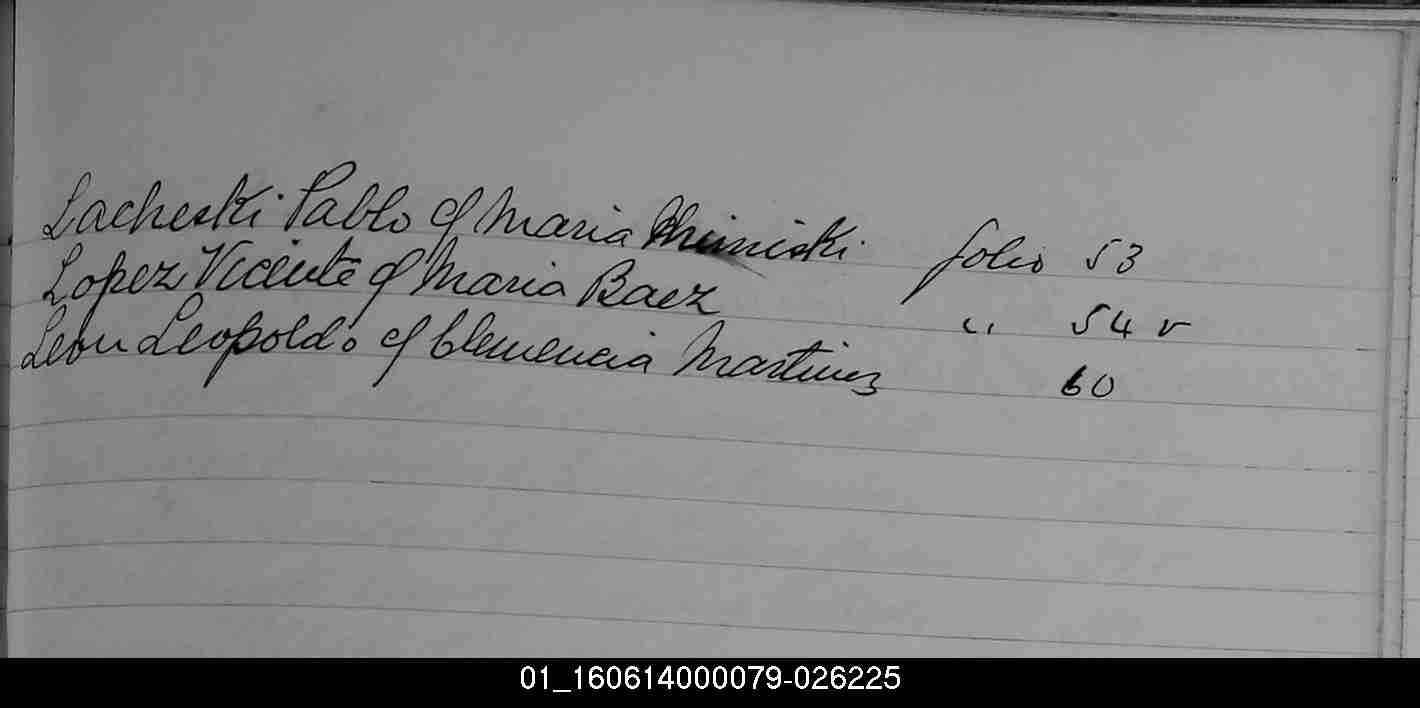 Lacheski Pablo cf Maria folio 53
Lopez Vicente cf Maria Baez " 54 v
Leon Leopoldo cf Clemencia Martinez 60
01_160614000079-026225